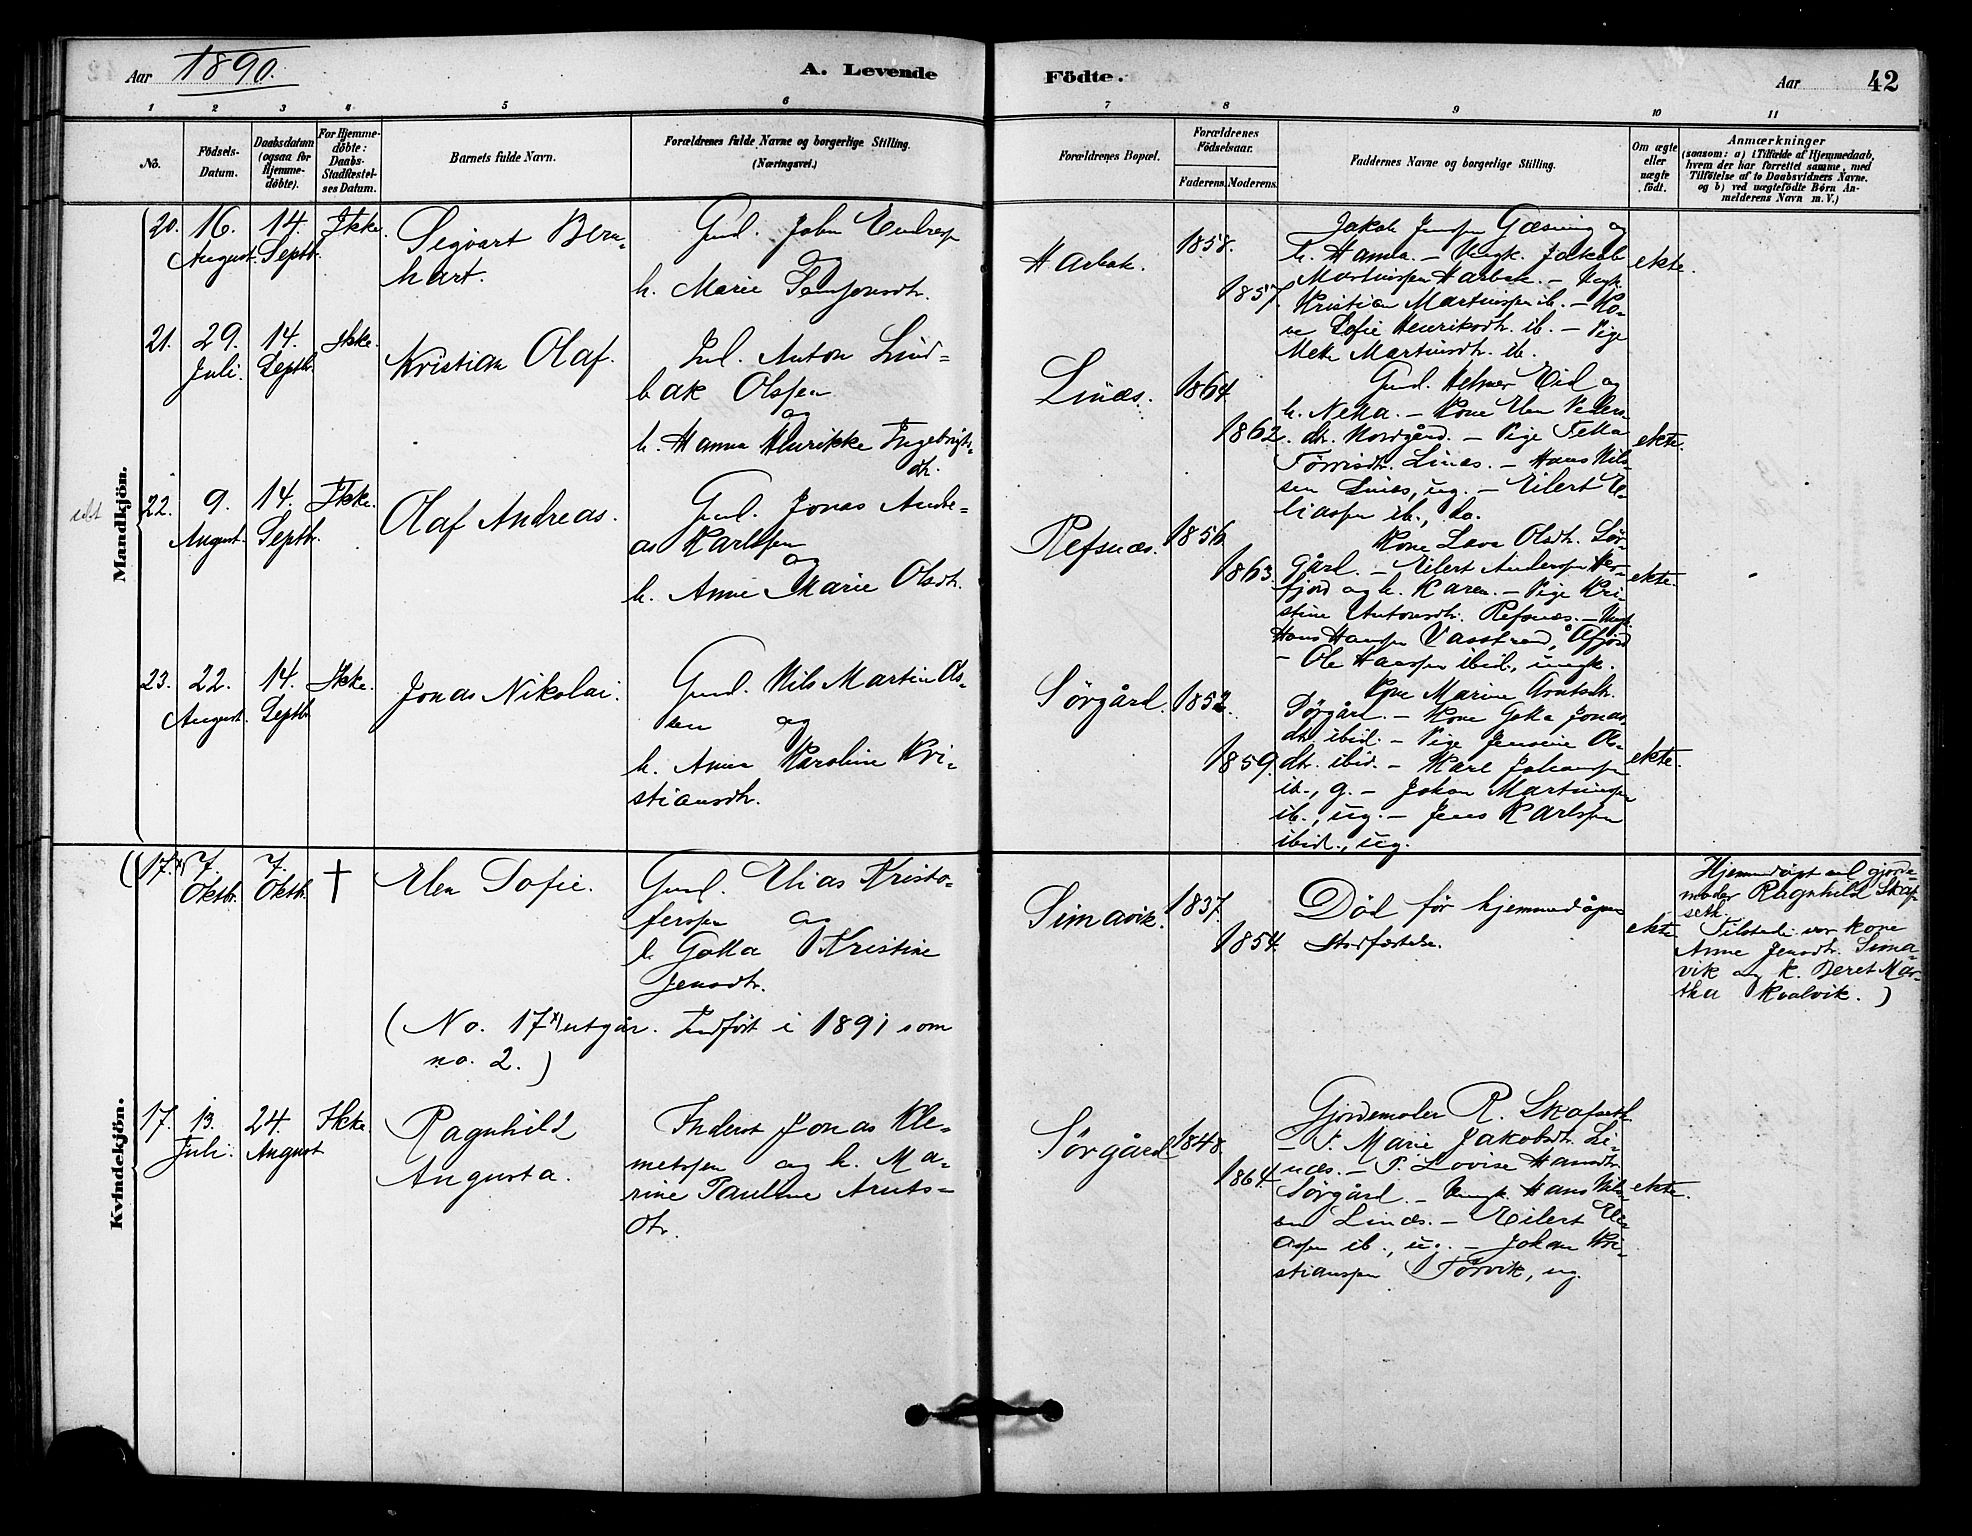 Aar 1890.
A. Levende
Födte.
Aar 42
1 2 3 4 5 6 7 8 9 10 11
No.
Födsels-
Datum.
Daabsdatum
(ogsaa for
Hjemme-
döbte).
For Hjemme-
döbte:
Daabs-
Stadfæstel-
ses Datum.
Barnets fulde Navn.
Forældrenes fulde Navne og borgerlige Stilling.
(Næringsvei.)
Forældrenes Bopæl.
Forældrenes
Födselsaar.
Faderens. Moderens.
Faddernes Navne og borgerlige Stilling.
Om ægte
eller
uægte
födt.
Anmærkninger
(saasom: a) i Tilfælde af Hjemmedaab,
hvem der har forrettet samme, med
Tilföielse af to Daabsvidners Navne.
og b) ved uægtefödte Börn An-
melderens Navn m. V.)
Mandkjön.
20. 16. August. 14. Septb. Ikke.
Sigvart Bern-
hart.
Gmd. John Endresen
og
h. Marie
Harbak.
1858.
1857.
Jakob Jensen Gæsning og
h. Hanna. - Ungk. Jakob
Martinssen Harbak. - Ungk.
Kristian Martinssen ib. - Ko-
ne Sofie Henriksdtr. ib. - Pige
Meta Martinsdtr. ib.
ekte.
21. 29. Juli. 14. Septb. Ikke.
Kristian Olaf.
Ind. Anton Lind-
bak Olssen
og
h. Hanna Henrikke Ingebrigts-
dtr.
Linæs.
1864.
1862.
Gmd. Helmer Eid og
h. Netta. - Kone Elen Peders-
dtr. Nordgård. - Pige Tella
Tørrisdtr. Linæs. - Hans Nils-
sen Linæs, ug. - Eilert E-
liassen ib., do.
ekte.
22. 9. August. 14. Septbr. Ikke.
Olaf Andreas.
Gmd. Jonas Andre-
as Karlssen
og
h. Anne Marie Olsdtr.
Refsnæs.
1856.
1863.
Kone Lava Olsdtr. Sør-
gård. - Eilert Anderssen
fjord og h. Karen. - Pige Kri-
stine Antonsdtr. Refsnæs. - Ungk.
Hans Hanssen Vasstrand, Åfjord
- Ole Hanssen ibid., ungk.
ekte.
23. 22. August. 14. Septb. Ikke.
Jonas Nikolai.
Gmd. Nils Martin Ols-
sen og
h. Anna Karoline Kri-
stiansdtr.
Sørgård.
1852.
1859.
Kone Marine Arntsdtr.
Sørgård. - Kone Golla Jonas-
dtr. ibid. - Pige Jensine Ols-
dtr. ibid. - Karl Johanssen
ib., g. - Johan Martinssen
ib., ug. - Jens Karlssen
ibid., ug.
ekte.
Kvindekjön.
(17.x) 7. Oktbr. 7. Oktbr. †
Elen Sofie.
Gmd. Elias Kristo-
ferssen og
h. Golla Kristine
Jensdtr.
Simavik.
1837.
1854.
Død før hjemmedåpens
Stadfæstelse.
ekte.
Hjemmedøpt av gjorde-
moder Ragnhild Skaf-
seth.
Tilstede var kone
Anne Jensdtr. Sima-
vik og k. Beret Mar-
tha Kvalvik.)
(No. 17x) utgår. Indført i 1891 som
no. 2.)
17. 13. Juli. 24. August Ikke.
Ragnhild
Augusta.
Inderst Jonas Kle-
metssen og h. Ma-
rine Pauline Arnts-
dtr.
Sørgård.
1848.
1864.
Gjordemoder R. Skafseth.
- P. Marie Jakobsdtr. Li-
næs. - P. Lovise Hansdtr.
Sørgård. - Ungk. Hans Nils-
sen Linæs. - Eilert Eli-
assen ib., ug. - Johan Kri-
stianssen Tørvik, ug.
ekte.